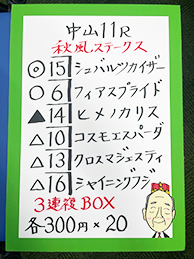 中山11R
秋風ステークス
◎15 シュバルツカイザー
○6 フィアスプライド
▲14 ヒメノカリス
△10 コスモエスパーダ
△13 クロスマジェスティ
△16 シャイニングフジ
3連複BOX
各300円×20